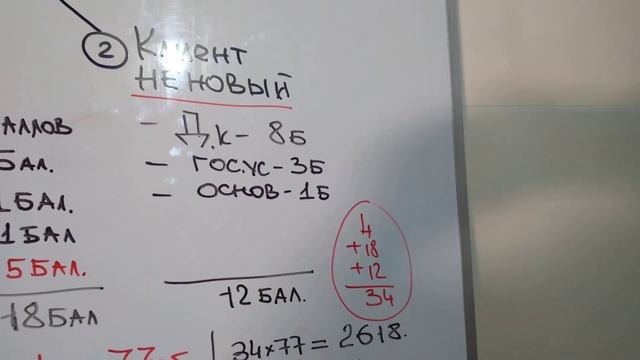 ② Клиент
НЕ НОВЫЙ
- Д.К - 8Б
- ГОС.УС - 3Б
- ОСНОВ - 1Б
12 БАЛ.
АЛЛОВ
БАЛ.
1 БАЛ.
1 БАЛ
5 БАЛ.
18 БАЛ
4
+18
+12
34
34×77 = 2618.